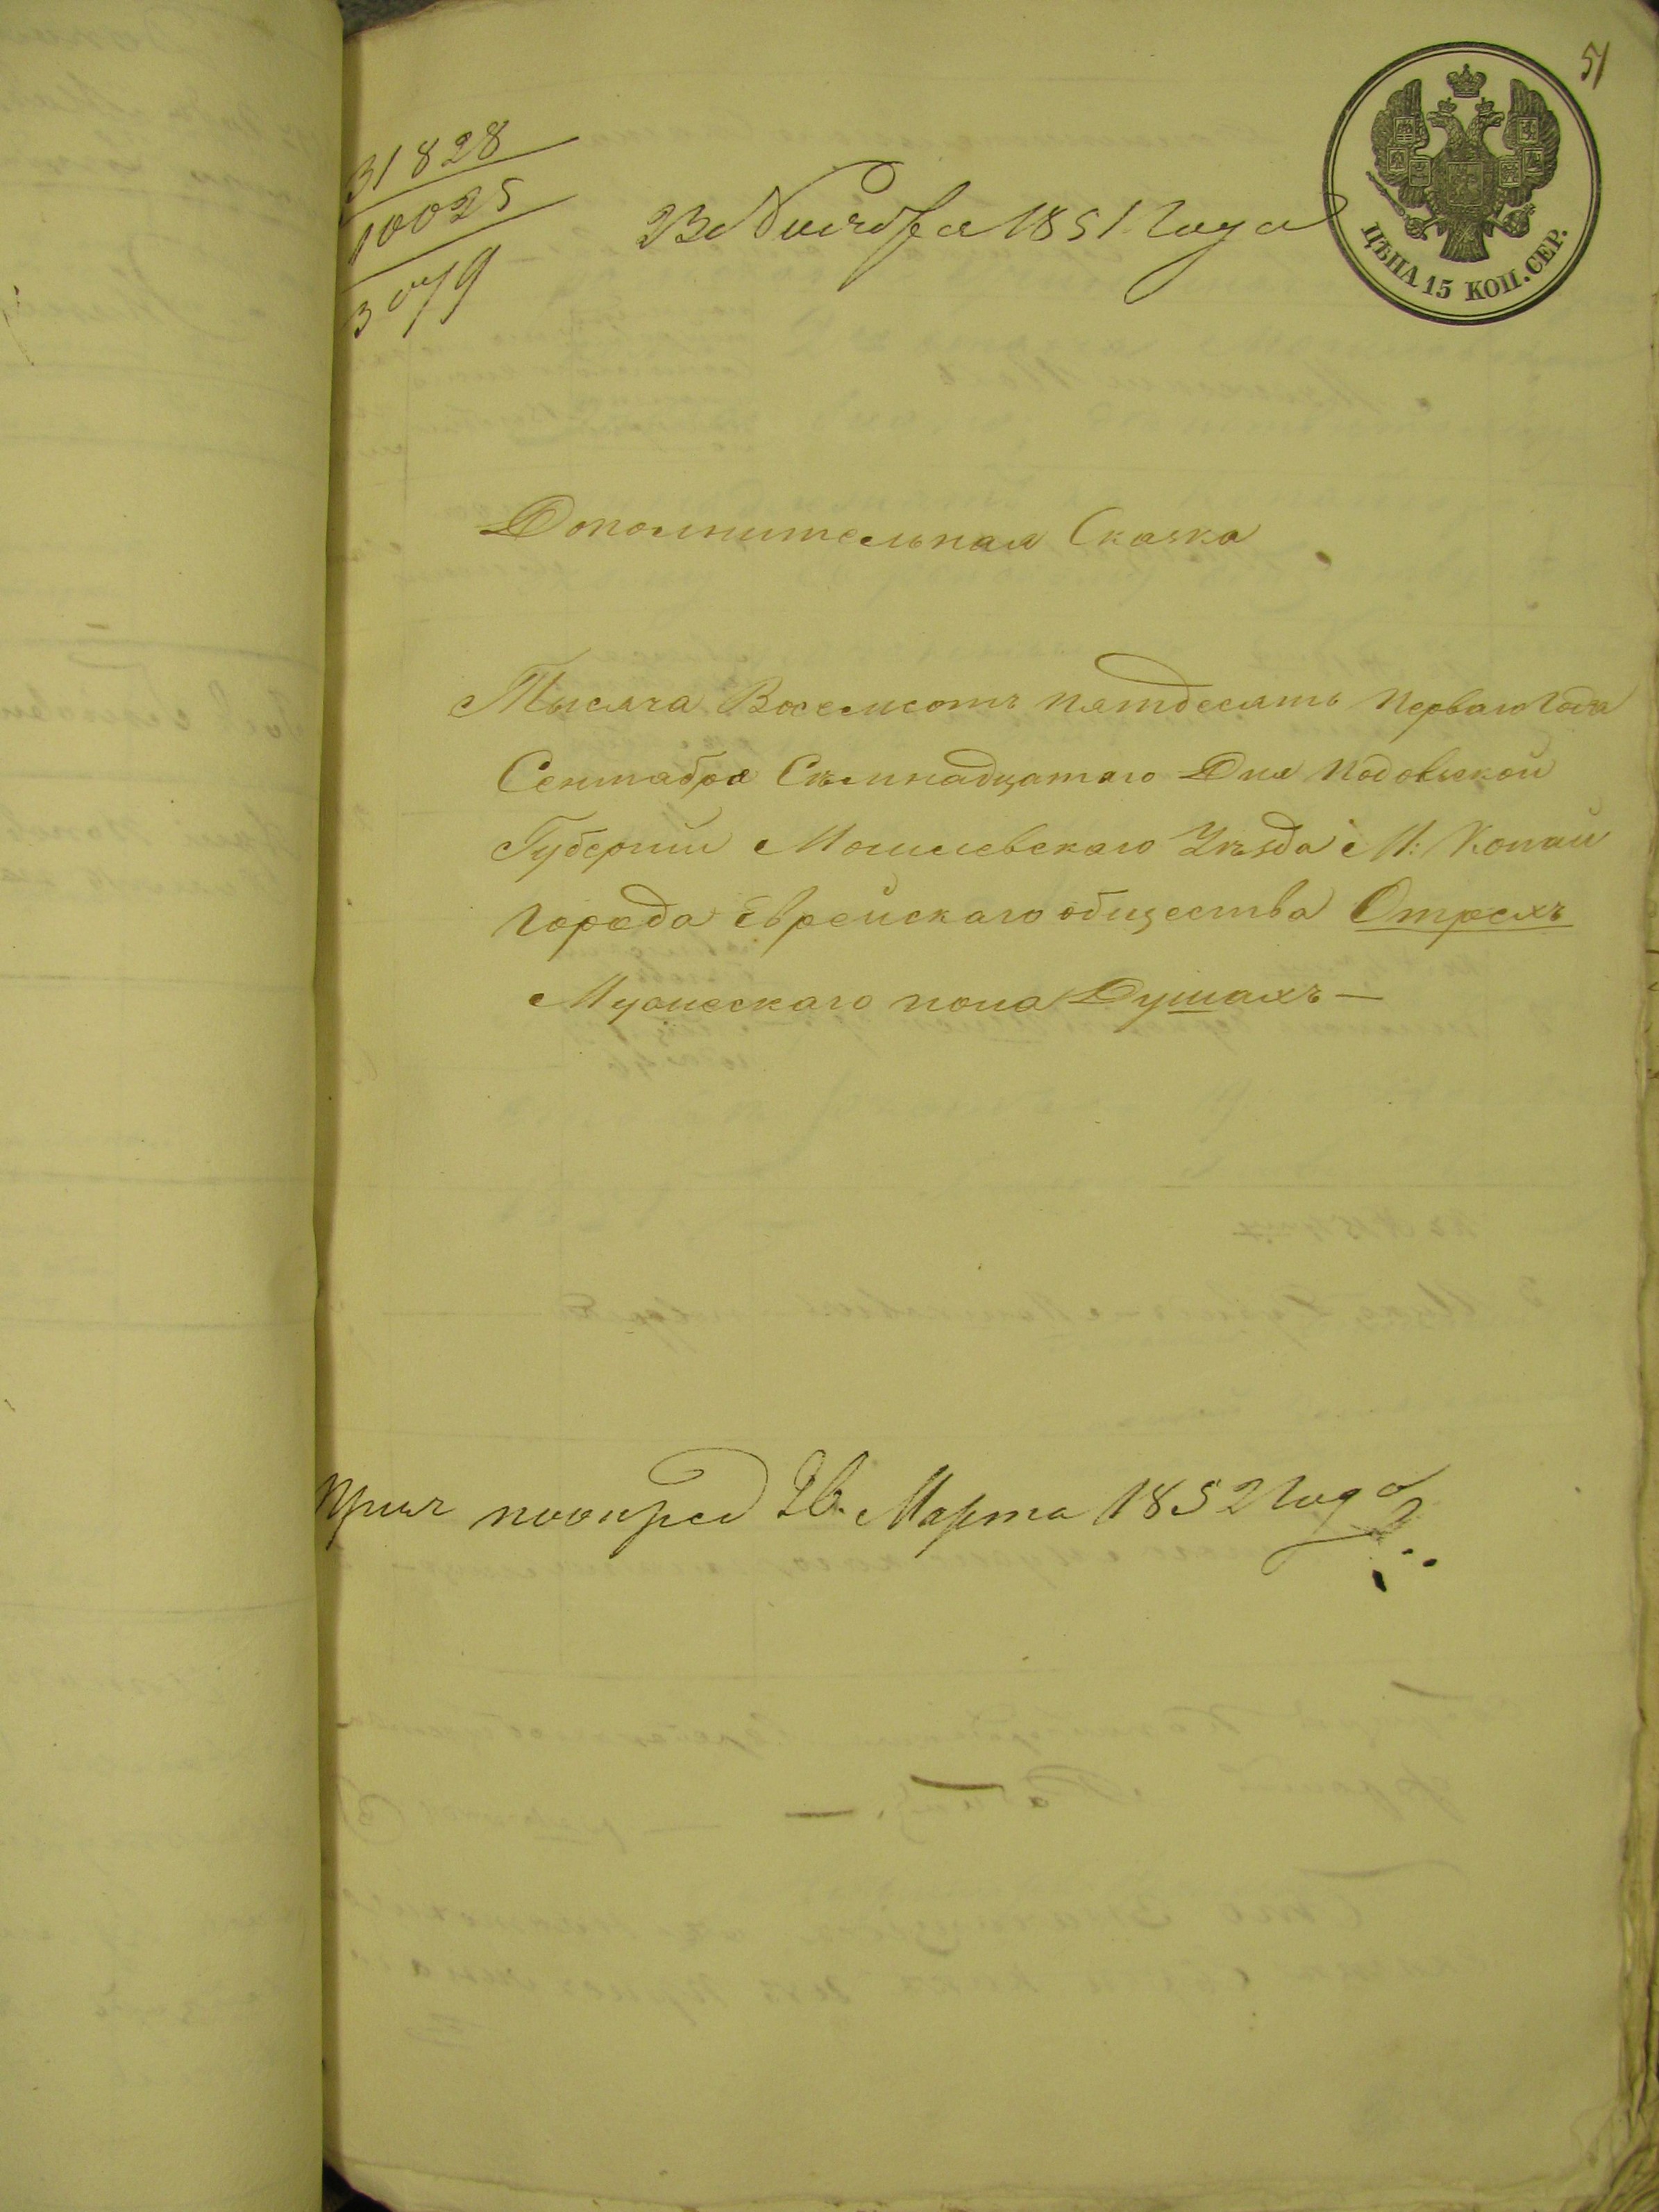 51
31828
10025
3079
23 Ноября 1851 Года
ЦѢНА 15 КОП. СЕР.
Дополнительная Сказка
Тысяча Восемсотъ пятдесятъ перваго Года
Сентября Семнадцатаго Дня Подольской
Губернии Могилевскаго Уѣзда М: Копай
города Еврейскаго общества Отрехъ
Мужескаго пола Душахъ —
26. Марта 1852 Года